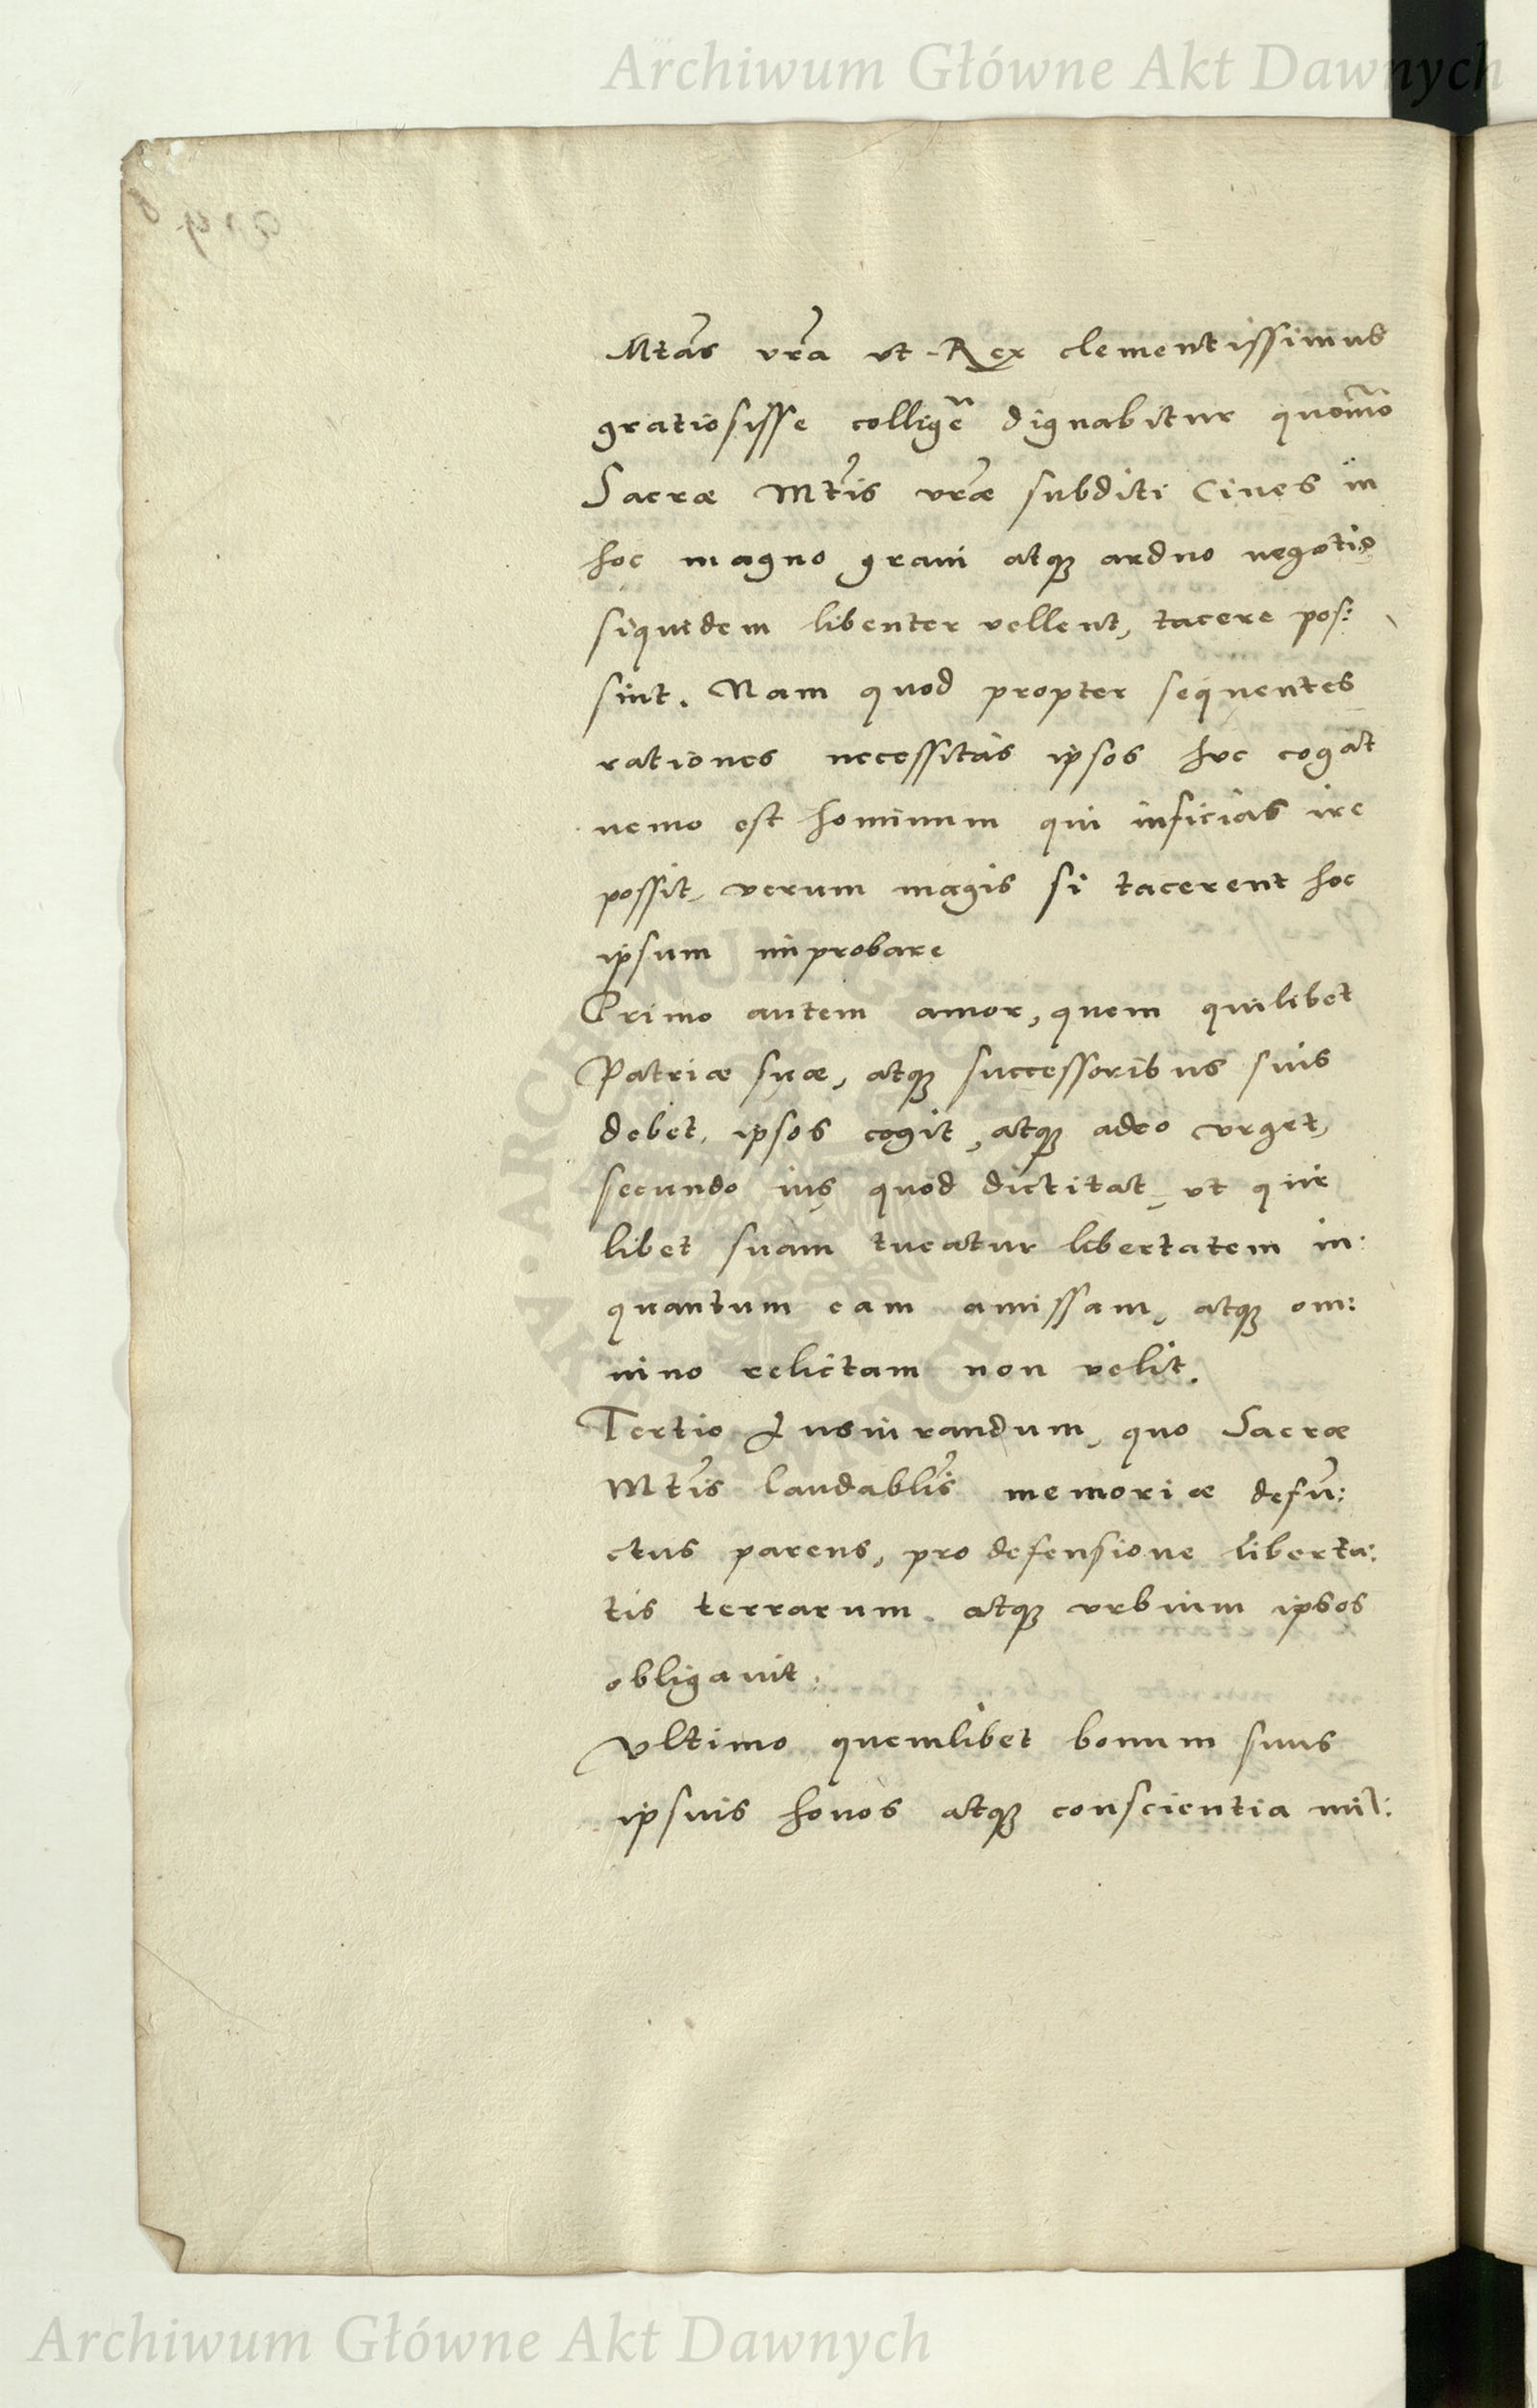 Archiwum Główne Akt Dawnych
Mtãs vrã vt Rex clementissimus
gratiosisse colligẽ dignabitur quomõ
Sacræ Mtis vræ subditi Ciues in
hoc magno graui atq; arduo negotio
siquidem libenter vellent, tacere pos:
sint. Nam quod propter sequentes
rationes necessitas ipsos huc cogat
nemo est hominum qui inficias ire
possit, verum magis si tacerent hoc
ipsum improbare
Primo autem amor, quem quilibet
Patriæ suæ, atq; successoribus suis
debet, ipsos cogit, atq; adeo vrget,
secundo ius quod dictitat, vt qui
libet suam tueatur libertatem in:
quantum eam amissam, atq; om:
nino relictam non velit.
Tertio Iusiurandum, quo Sacræ
Mtis laudablis memoriæ defũ:
ctus parens, pro defensione liberta:
tis terrarum atq; vrbium ipsos
obligauit:
Vltimo quemlibet bonum suus
ipsius honos atq; conscientia mil:
ARCHIWUM GŁÓWNE AKT DAWNYCH
Archiwum Główne Akt Dawnych